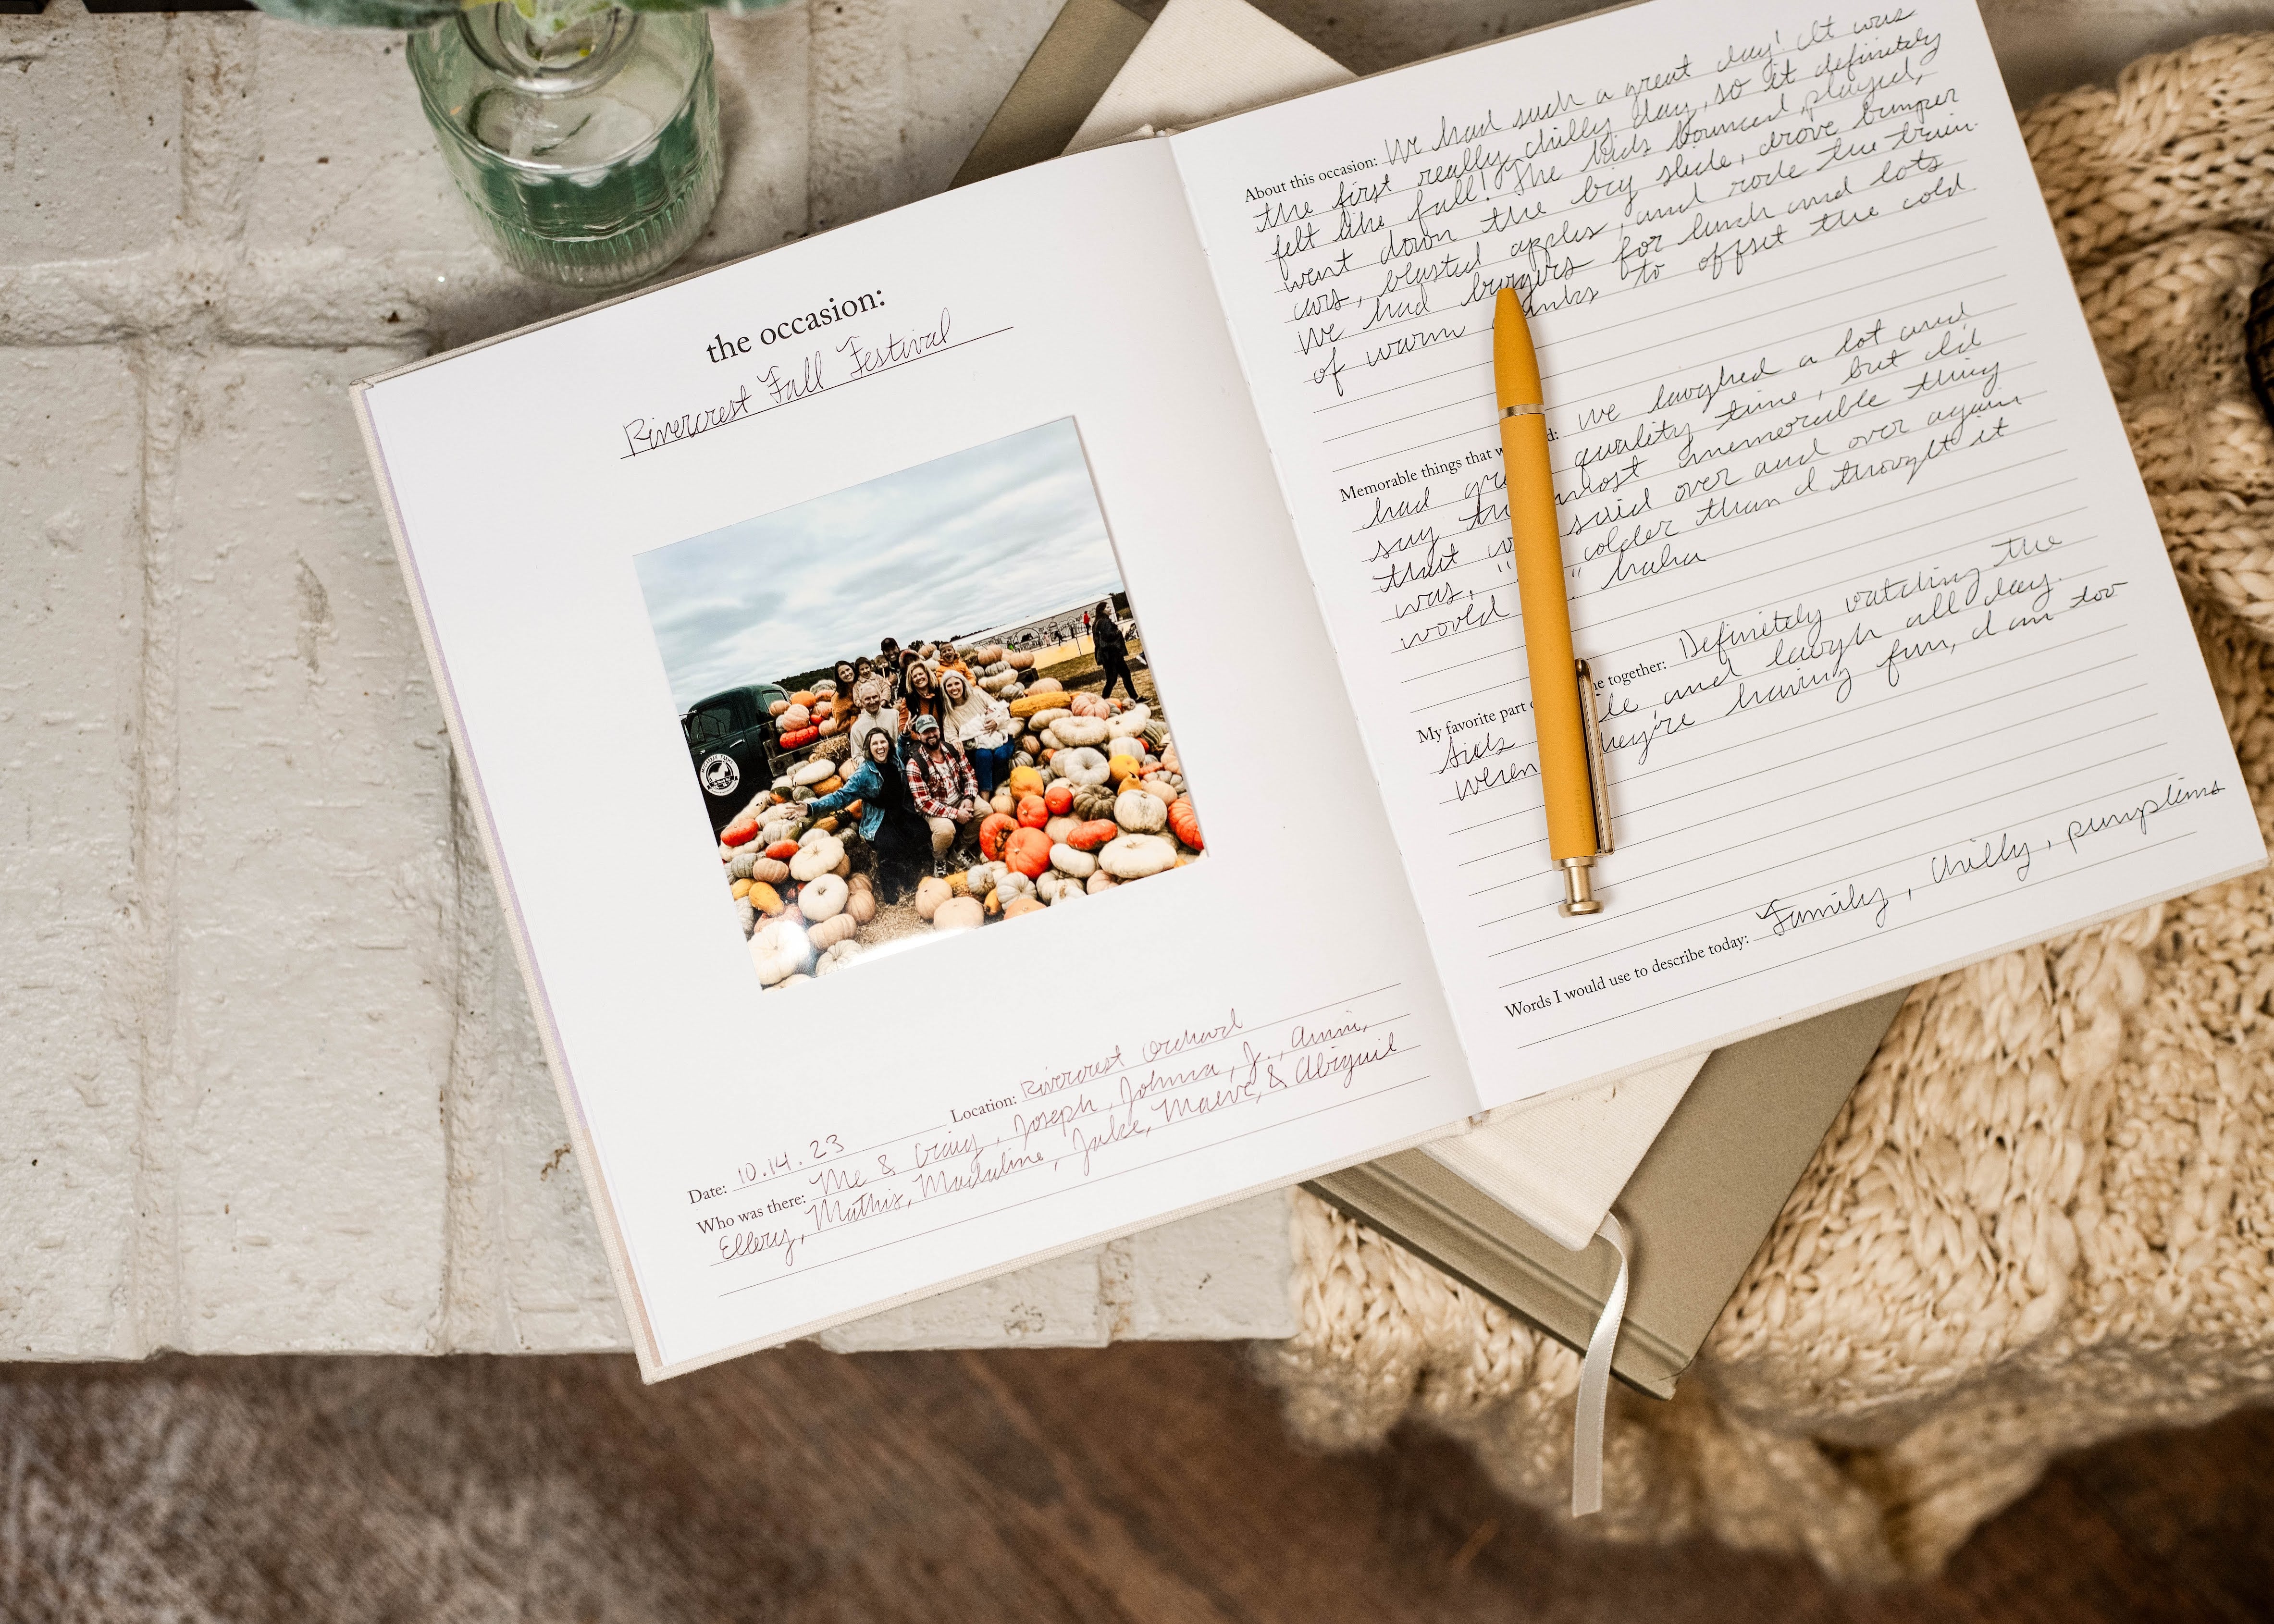 the occasion:
Rivercrest Fall Festival
Date: 10.14.23 Location: Rivercrest Orchard
Who was there: Me & Craig, Joseph, Johnna, Jr., Anni,
Ellery, Mathis, Madaline, Jake, Maeve, & Abigail
About this occasion: We had such a great day! It was
the first really chilly day, so it definitely
felt like fall! The kids bounced, played,
went down the big slide, drove bumper
cars, blasted apples, and rode the train.
We had burgers for lunch and lots
of warm to offset the cold
Memorable things that we laughed a lot and
had quality time, but I'd
say most memorable thing
that said over and over again
was, " colder than I thought it
would " haha
My favorite part together: Definitely watching the
kids and laugh all day.
When they're having fun, I am too
Words I would use to describe today: Family, chilly, pumpkins